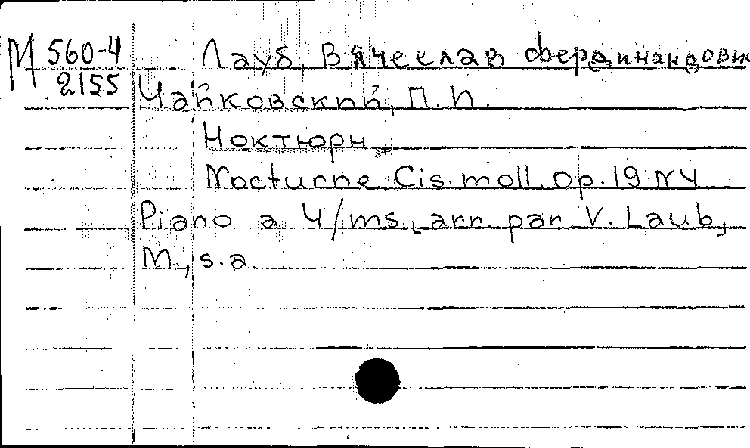 М 560-4 Лауб, Вячеслав Фердинандович
2155 Чайковский, П. И.
Ноктюрн.
Nocturne Cis moll. op. 19 N4
Piano a 4/ms., arr. par V. Laub,
М., s.a.